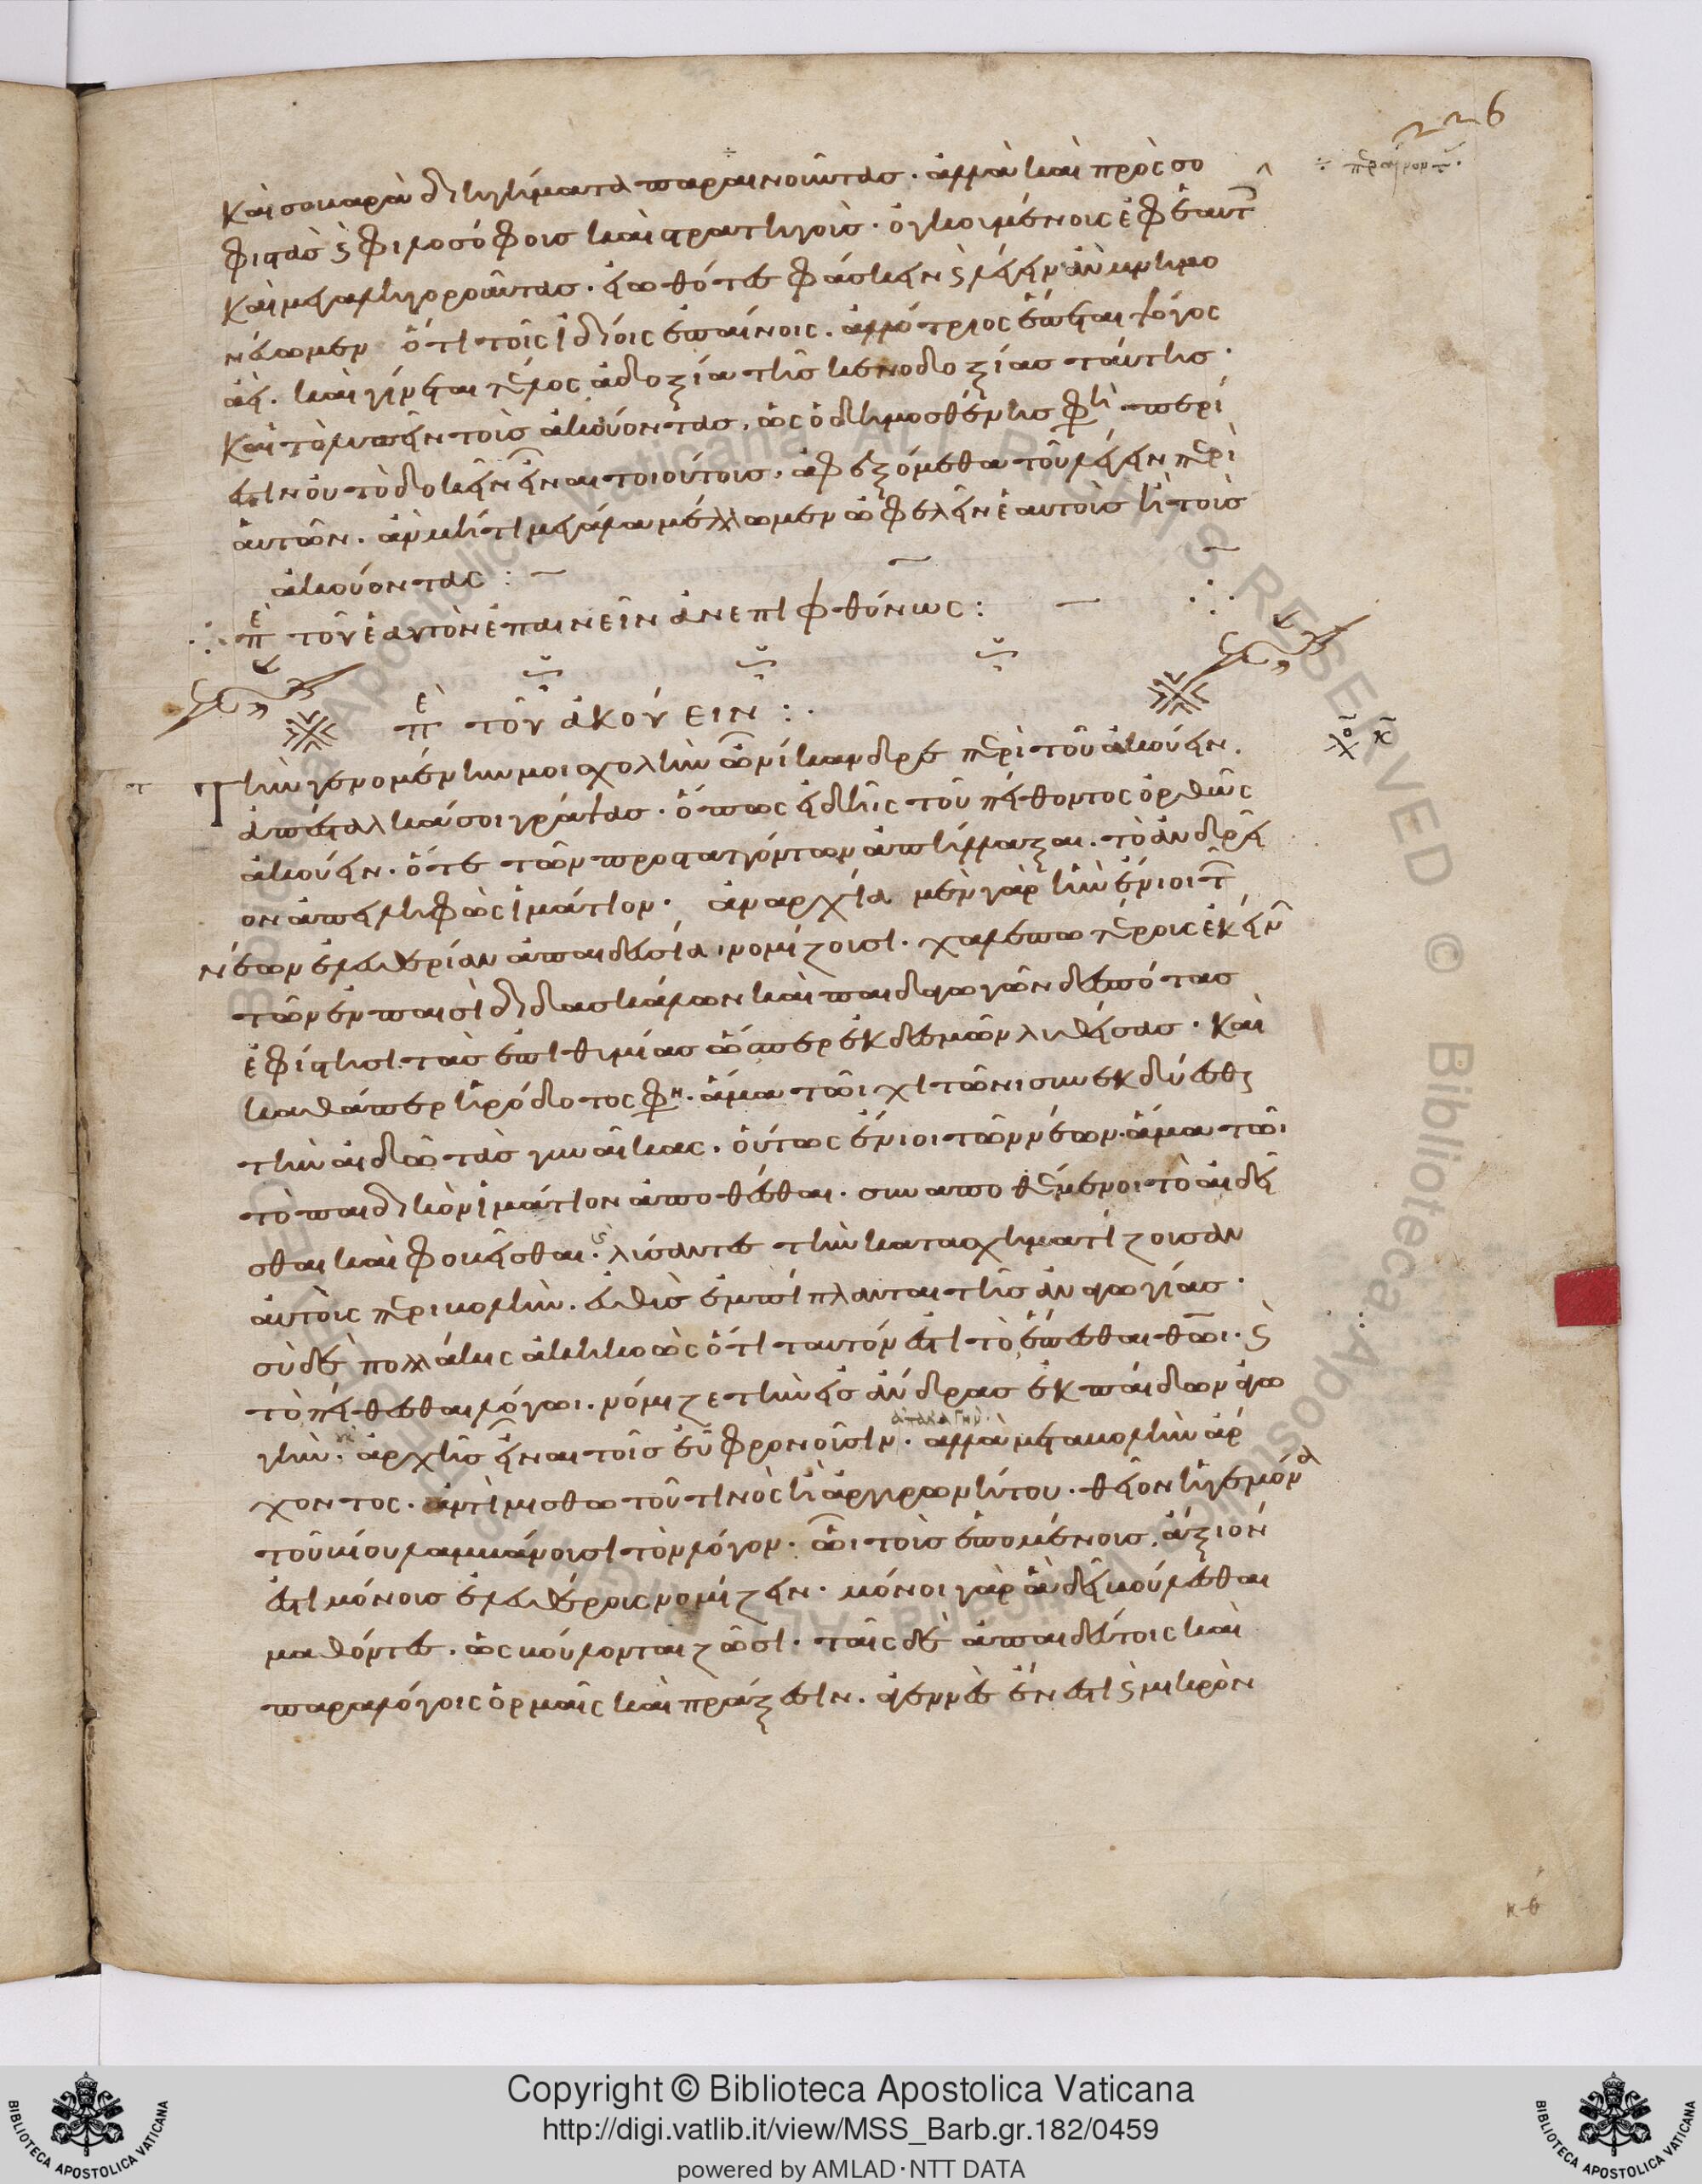 226
καὶ σοκαρὰ διηγήματα παραινοῦντας· ἀλλὰ καὶ πρὸς σο
÷ περαίνοντ(ας)·
φιστὰς ϛ φιλοσόφοις καὶ στρατηγοῖς· ὀγκουμένοις ἐφ' ἑαυτ
καὶ μεγαληγοροῦντας· εἰωθότες φάσκειν ϛ λέγειν ἂν μνημο
νεύωμεν ὅτι τοῖς ἰδίοις ἐπαίνοις· ἀλλότριος ἕπεται ψόγος
ἀεί· καὶ γίνεται τέλος ἀδοξία τῆς κενοδοξίας ταύτης·
καὶ τὸ λυπεῖν τοὺς ἀκούοντας, ὡς ὁ δημοσθένης φη· περί
εστιν οὐ τὸ δοκεῖν εἶναι τοιούτους· ἀφεξόμεθα τοῦ λέγειν περὶ
αὐτῶν· ἂν μή τι μεγάλα μέλλωμεν ὠφελεῖν ἑαυτοὺς ἢ τοὺς
ἀκούοντας :—
πε τοῦ ἑαυτὸν ἐπαινεῖν ἀνεπιφθόνως : —
πε τοῦ ἀκούειν :·
Τὴν γενομένην μοι σχολὴν ὦ νίκανδρε περὶ τοῦ ἀκούειν·
ἀπέσταλκά σοι γράψας· ὅπως εἰδῇς τοῦ πείθοντος ὀρθῶς
ἀκούειν· ὅτε τῶν προσταττόντων ἀπήλλαξαι· τὸ ἀνδρεῖ
ον ἀπειληφὼς ἱμάτιον· ἀναρχία μὲν γὰρ ἣν ἔνιοι τ
νέων ἐλευθερίαν ἀπαιδευσία νομίζουσι· χαλεπωτέροις ἐκείν
τῶν ἐν παισὶ διδασκάλων καὶ παιδαγωγῶν δεσπότας
ἐφίστησι τὰς ἐπιθυμίας ὥσπερ ἐκ δεσμῶν λυθείσας· καὶ
καθάπερ ἡρόδοτος φη· ἅμα τῶι χιτῶνι συνεκδύεσθ
τὴν αἰδῶ τὰς γυναῖκας· οὕτως ἔνιοι τῶν νέων ἅμα τῶι
τὸ παιδικὸν ἱμάτιον ἀποθέσθαι· συναποθέμενοι τὸ αἰδεῖ
σθαι καὶ φοβεῖσθαι· ϛ λύσαντες τὴν κατασχηματίζουσαν
αὐτοὺς περιβολὴν· εὐθὺς ἐμπίπλανται τῆς ἀναγωγίας·
σὺ δὲ πολλάκις ἀκηκοὼς ὅτι ταυτόν ἐστι τὸ ἕπεσθαι θῶι· ϛ
τὸ πείθεσθαι λόγωι· νόμιζε τὴν εἰς ἄνδρας ἐκ παίδων ἀγω
ἀπαλαγην·
γὴν· οὐκ ἀρχῆς εἶναι τοῖς εὖ φρονοῦσιν· ἀλλὰ μεταβολὴν ἄρ
χοντος· ἀντὶ μισθωτοῦ τινὸς ἢ ἀργυρωνήτου· θεῖον ἡγεμόνα
τοῦ βίου λαμβάνουσι τὸν λόγον· ὧι τοὺς ἑπομένους, ἄξιόν
ἐστι μόνους ἐλευθέρους νομίζειν· μόνοι γὰρ ἃ δεῖ βούλεσθαι
μαθόντες· ὡς βούλονται ζῶσι· ταῖς δὲ ἀπαιδεύτοις καὶ
παραλόγοις ὁρμαῖς καὶ πράξεσιν· ἀγεννὲς ἔνεστι ϛ μικρὸν
κθ
Copyright © Biblioteca Apostolica Vaticana
http://digi.vatlib.it/view/MSS_Barb.gr.182/0459
powered by AMLAD·NTT DATA
BIBLIOTECA APOSTOLICA VATICANA
BIBLIOTECA APOSTOLICA VATICANA